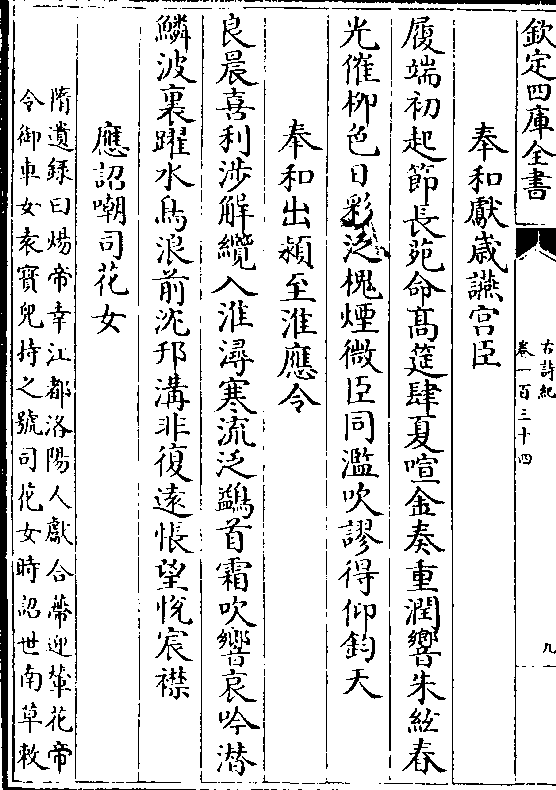 欽定四庫全書
古詩紀
卷一百三十四
九
奉和獻歲讌宫臣
履端初起節長苑命髙筵肆夏喧金奏重潤響朱絃春
光催柳色日彩泛槐煙微臣同濫吹謬得仰鈞天
奉和出潁至淮應令
良晨喜利涉解纜入淮潯寒流泛鷁首霜吹響哀吟潜
鱗波裏躍水鳥浪前沈邗溝非復逺悵望悅宸襟
應詔嘲司花女
隋遺録曰煬帝幸江都洛陽人獻合蔕迎輦花帝
令御車女袁寳兒持之號司花女時詔世南草敕